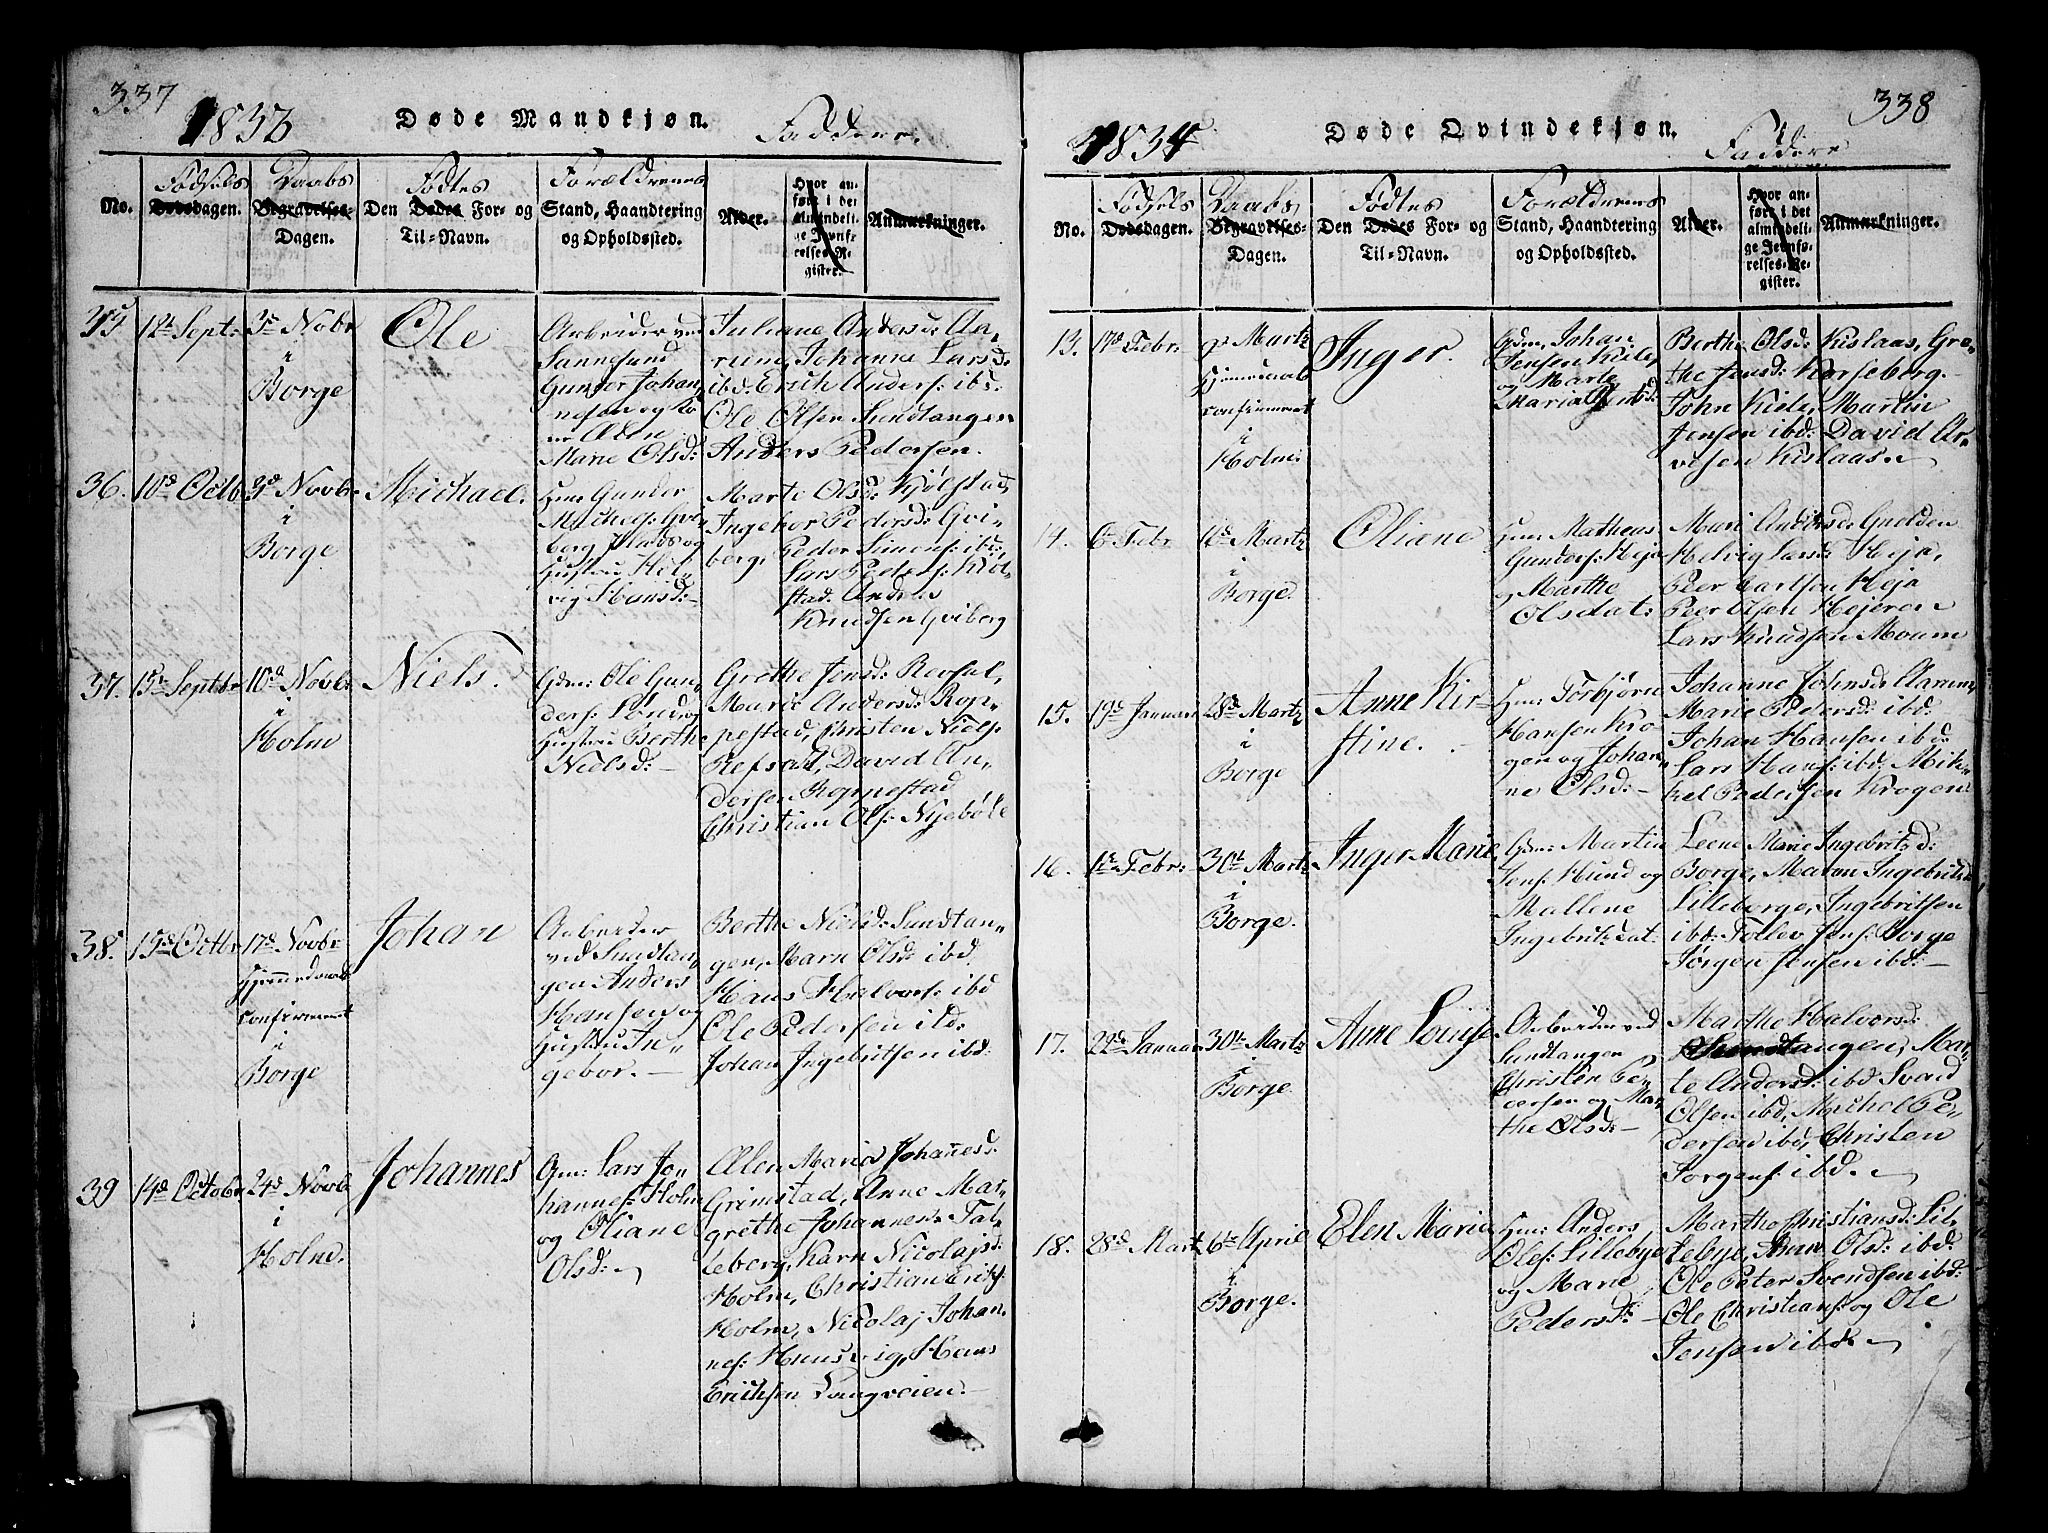 337
1833
Døde Mandkjøn.
Faddere.
No.
Fødsels
Dødsdagen.
Daabs
Begravelses-
Dagen.
Fødtes
Den Dødes For- og
Til-Navn.
Forældrenes
Stand, Haandtering
og Opholdssted.
Alder.
Hvor an-
ført i det
almindeli-
ge Jevnfø-
relses-Re-
gister.
Anmærkninger.
12te Septr
3de Novbr
i
Borge
Ole
Arbeider ved
Sannesund
Gunder Johan-
nesen og Ko-
ne
Marie Olsd:
Juliane Andersd:
Johanne Larsd:
ibd: Erich Anders: ibd:
Ole Olsen Sundtangen
Anders Pedersen.
36.
10de Octb
3de Novbr
i
Borge
Michael.
Hmd Gunder
Michels: Gvi-
berg Plads og
Hustru Hel-
vig Hansd:
Marte Olsd: Kjølstad
Ingebor Pedersd: Gvi-
berg, Peder Simons: ibd
Lars Peders: Kiøl-
stad. Anders
Knudsen Gviberg
37.
15de Septbr
10de Novbr
i
Holm
Niels.
Gdm: Ole Gun-
ders:
Hustru Berthe
Nielsd:
Grethe Jonsd: Refsal,
Marie Andersd: Rop-
pestad, Christen Niels:
Refsal, David An-
dersen Roppestad
Christian Ols: Nyebøle
38.
15de Octbr
17de Novbr
Hjemmedaab
confirmeret
i
Borge
Johan
Arbeider
ved Sundtan-
gen Anders
Hansen og
Hustru In-
gebor.
Berthe Nielsd: Sundtan-
gen, Marn Olsd: ibd
Hans Halvors: ibd
Ole Pedersen ibd:
Johan Ingebritsen ibd:
39
14de Octobr
24de Novbr
i
Holm.
Johannes
Gm: Lars Jo-
hannes: Holm
og Oliane
Olsd:
Ælen Maria Johannesd:
Grimstad, Anne Mar-
grethe Johannesd: Tal-
leberg, Karn Nicolajsd:
Holm, Christian Erichs:
Holm, Nicolaj Johan-
nes: Hunsvig, Hans
Erichsen Langveien.
338
1834
Døde Qvindekjøn.
Faddere
No.
Fødsels
Dødsdagen.
Daabs
Begravelses-
Dagen.
Fødtes
Den Dødes For- og
Til-Navn.
Forældrenes
Stand, Haandtering
og Opholdssted.
Alder.
Hvor an-
ført i det
almindeli-
ge Jevnfø-
relses-Re-
gister.
Anmærkninger.
13.
17de Febr:
9de Martz
Hjemmedaab
confirmeret
i
Holm.
Inger.
Gdm, Johan
Jensen Kiile,
og Marte
Maria
Berthe Olsd: Kislaas, Gre-
the Jensd: Korseberg.
John Kiile, Martin
Jensen ibd: David Ar-
vesen Kislaas.
14.
6te Febr
16de Martz
i
Borge.
Oliane
Hmd Mathias
Gunders: Heja
og Marthe
Olsdat:
Mari Andersd: Guslden
Helvig Larsd: Heja,
Peer Carlsen Heja
Peer Olsen Hejeren
Lars Knudsen Moum
15.
19de Januari
28de Martz
i
Borge
Anne Kir-
stine.
Hmd Torbjørn
Hansen Kro-
gen og Johan-
ne Olsd:
Johanne Johnsd:
Marie Pedersd: ibd.
Johan Hansen ibd:
Lars Hans: ibd: Mik-
kel Pedersen Krogen.
16.
1te Febr:
30te Martz
i
Borge.
Inger Marie
Gdm: Martin
Jens: Hund og
Mallene
Ingebritzdat:
Leene Marie Ingebritzd:
Borge, Maren Ingebritzd
Lilleborge, Ingebritsen
ibd: Tollev Jens: Borge
Jørgen Jensen ibd:
17.
22de Januar
30te Martz
i
Borge.
Anne Louise
Arbeider ved
Sundtangen
Christen Pe-
dersen og Mar-
the Olsd:
Marthe Halvorsd:
Sundtangen, Mar-
te Andersd: ibd Svend
Olsen ibd, Michel Pe-
dersen ibd, Christen
Jorgens: ibd.
18.
28de Mart
6te April
i
Borge.
Elen Maria
Hmd: Anders
Oles: Lillebye
og Marie
Pedersd:
Marthe Christiansd: Lil-
lebye, Olsd: ibd:
Ole Peter Svendsen ibd:
Ole Christians: og Ole
Jensen ibd.